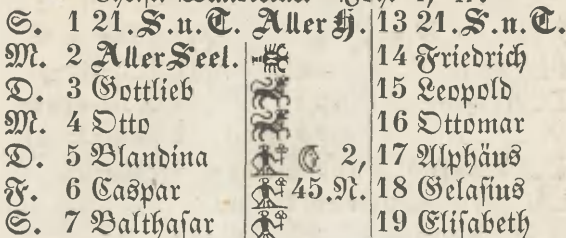 S. 1 21. S. n. T. Aller H. 13 21. S. n. T.
M. 2 Aller Seel. 14 Friedrich
D. 3 Gottlieb 15 Leopold
M. 4 Otto 16 Ottomar
D. 5 Blandina ☾ 2, 17 Alphäus
F. 6 Caspar 45. N. 18 Gelasius
S. 7 Balthasar 19 Elisabeth